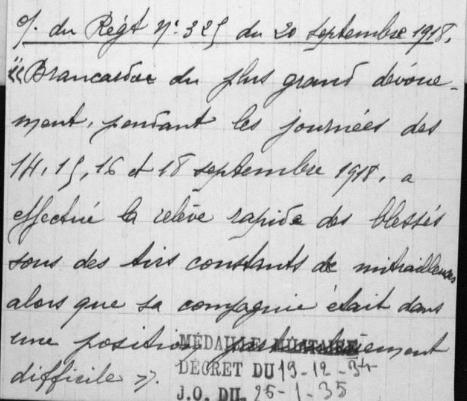 O/. du Régt N° 325 du 20 septembre 1918.
"Brancardier du plus grand dévoue-
ment, pendant les journées des
14, 15, 16 et 18 septembre 1918, a
effectué la relève rapide des blessés
sous des tirs constants de mitrailleuses
alors que sa compagnie était dans
une position particulièrement
MÉDAILLE MILITAIRE
difficile ».
DÉCRET DU 19-12-34
J.O. DU 25-1-35